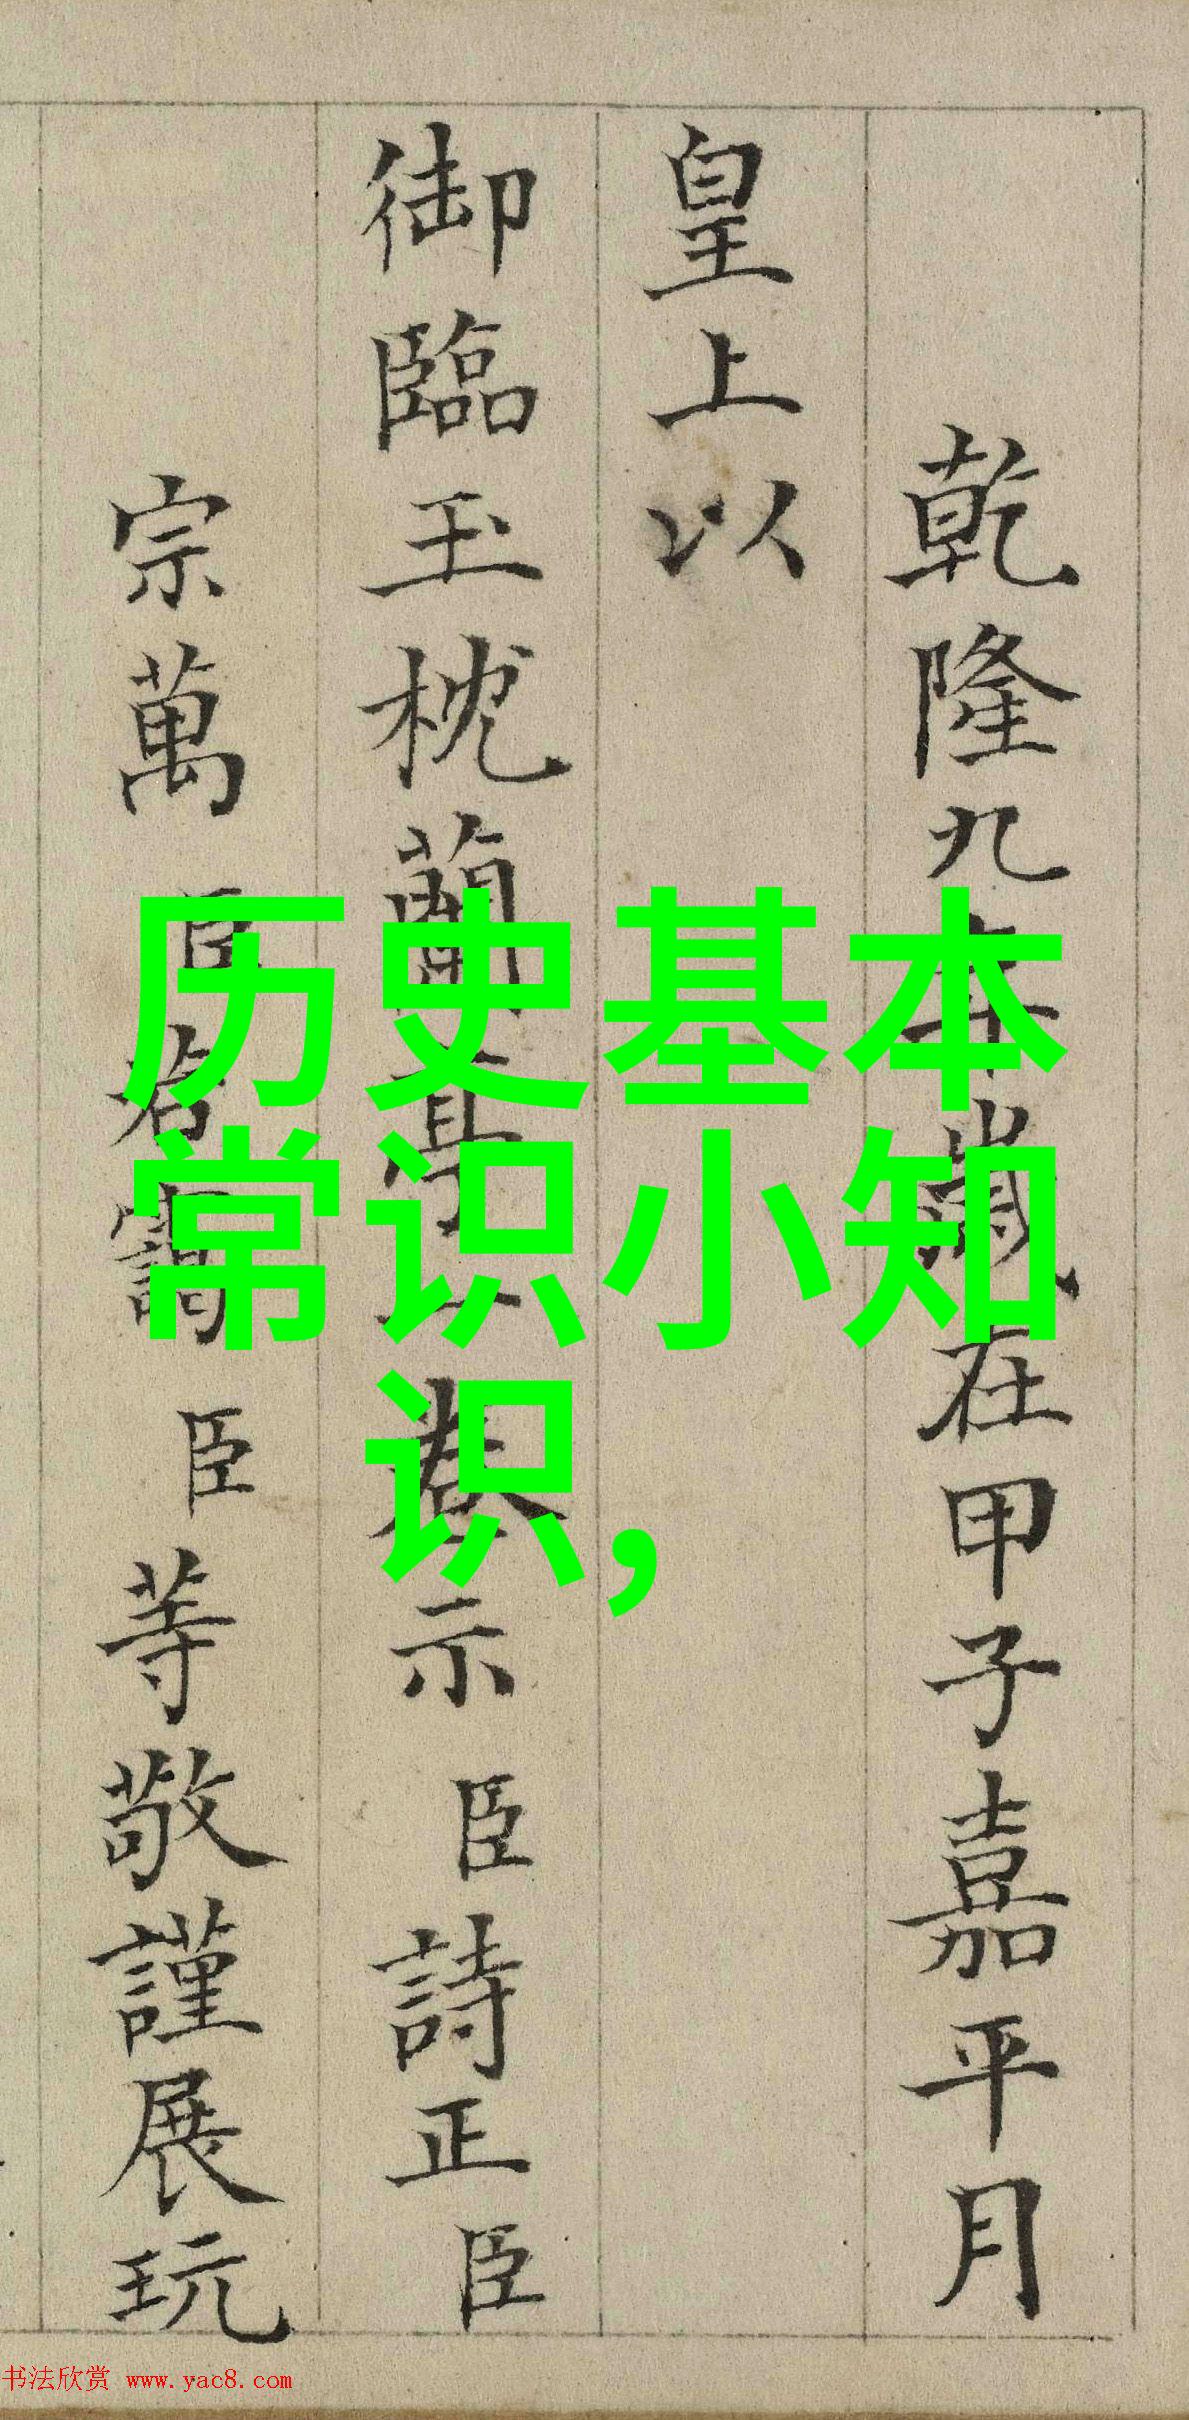 乾隆九年歲在甲子嘉平月
皇上以
御臨玉枕蘭亭一卷示臣詩正臣
宗萬臣若靄臣等敬謹展玩
历史基本
常识小知
识,
书法欣赏 www.yac8.com